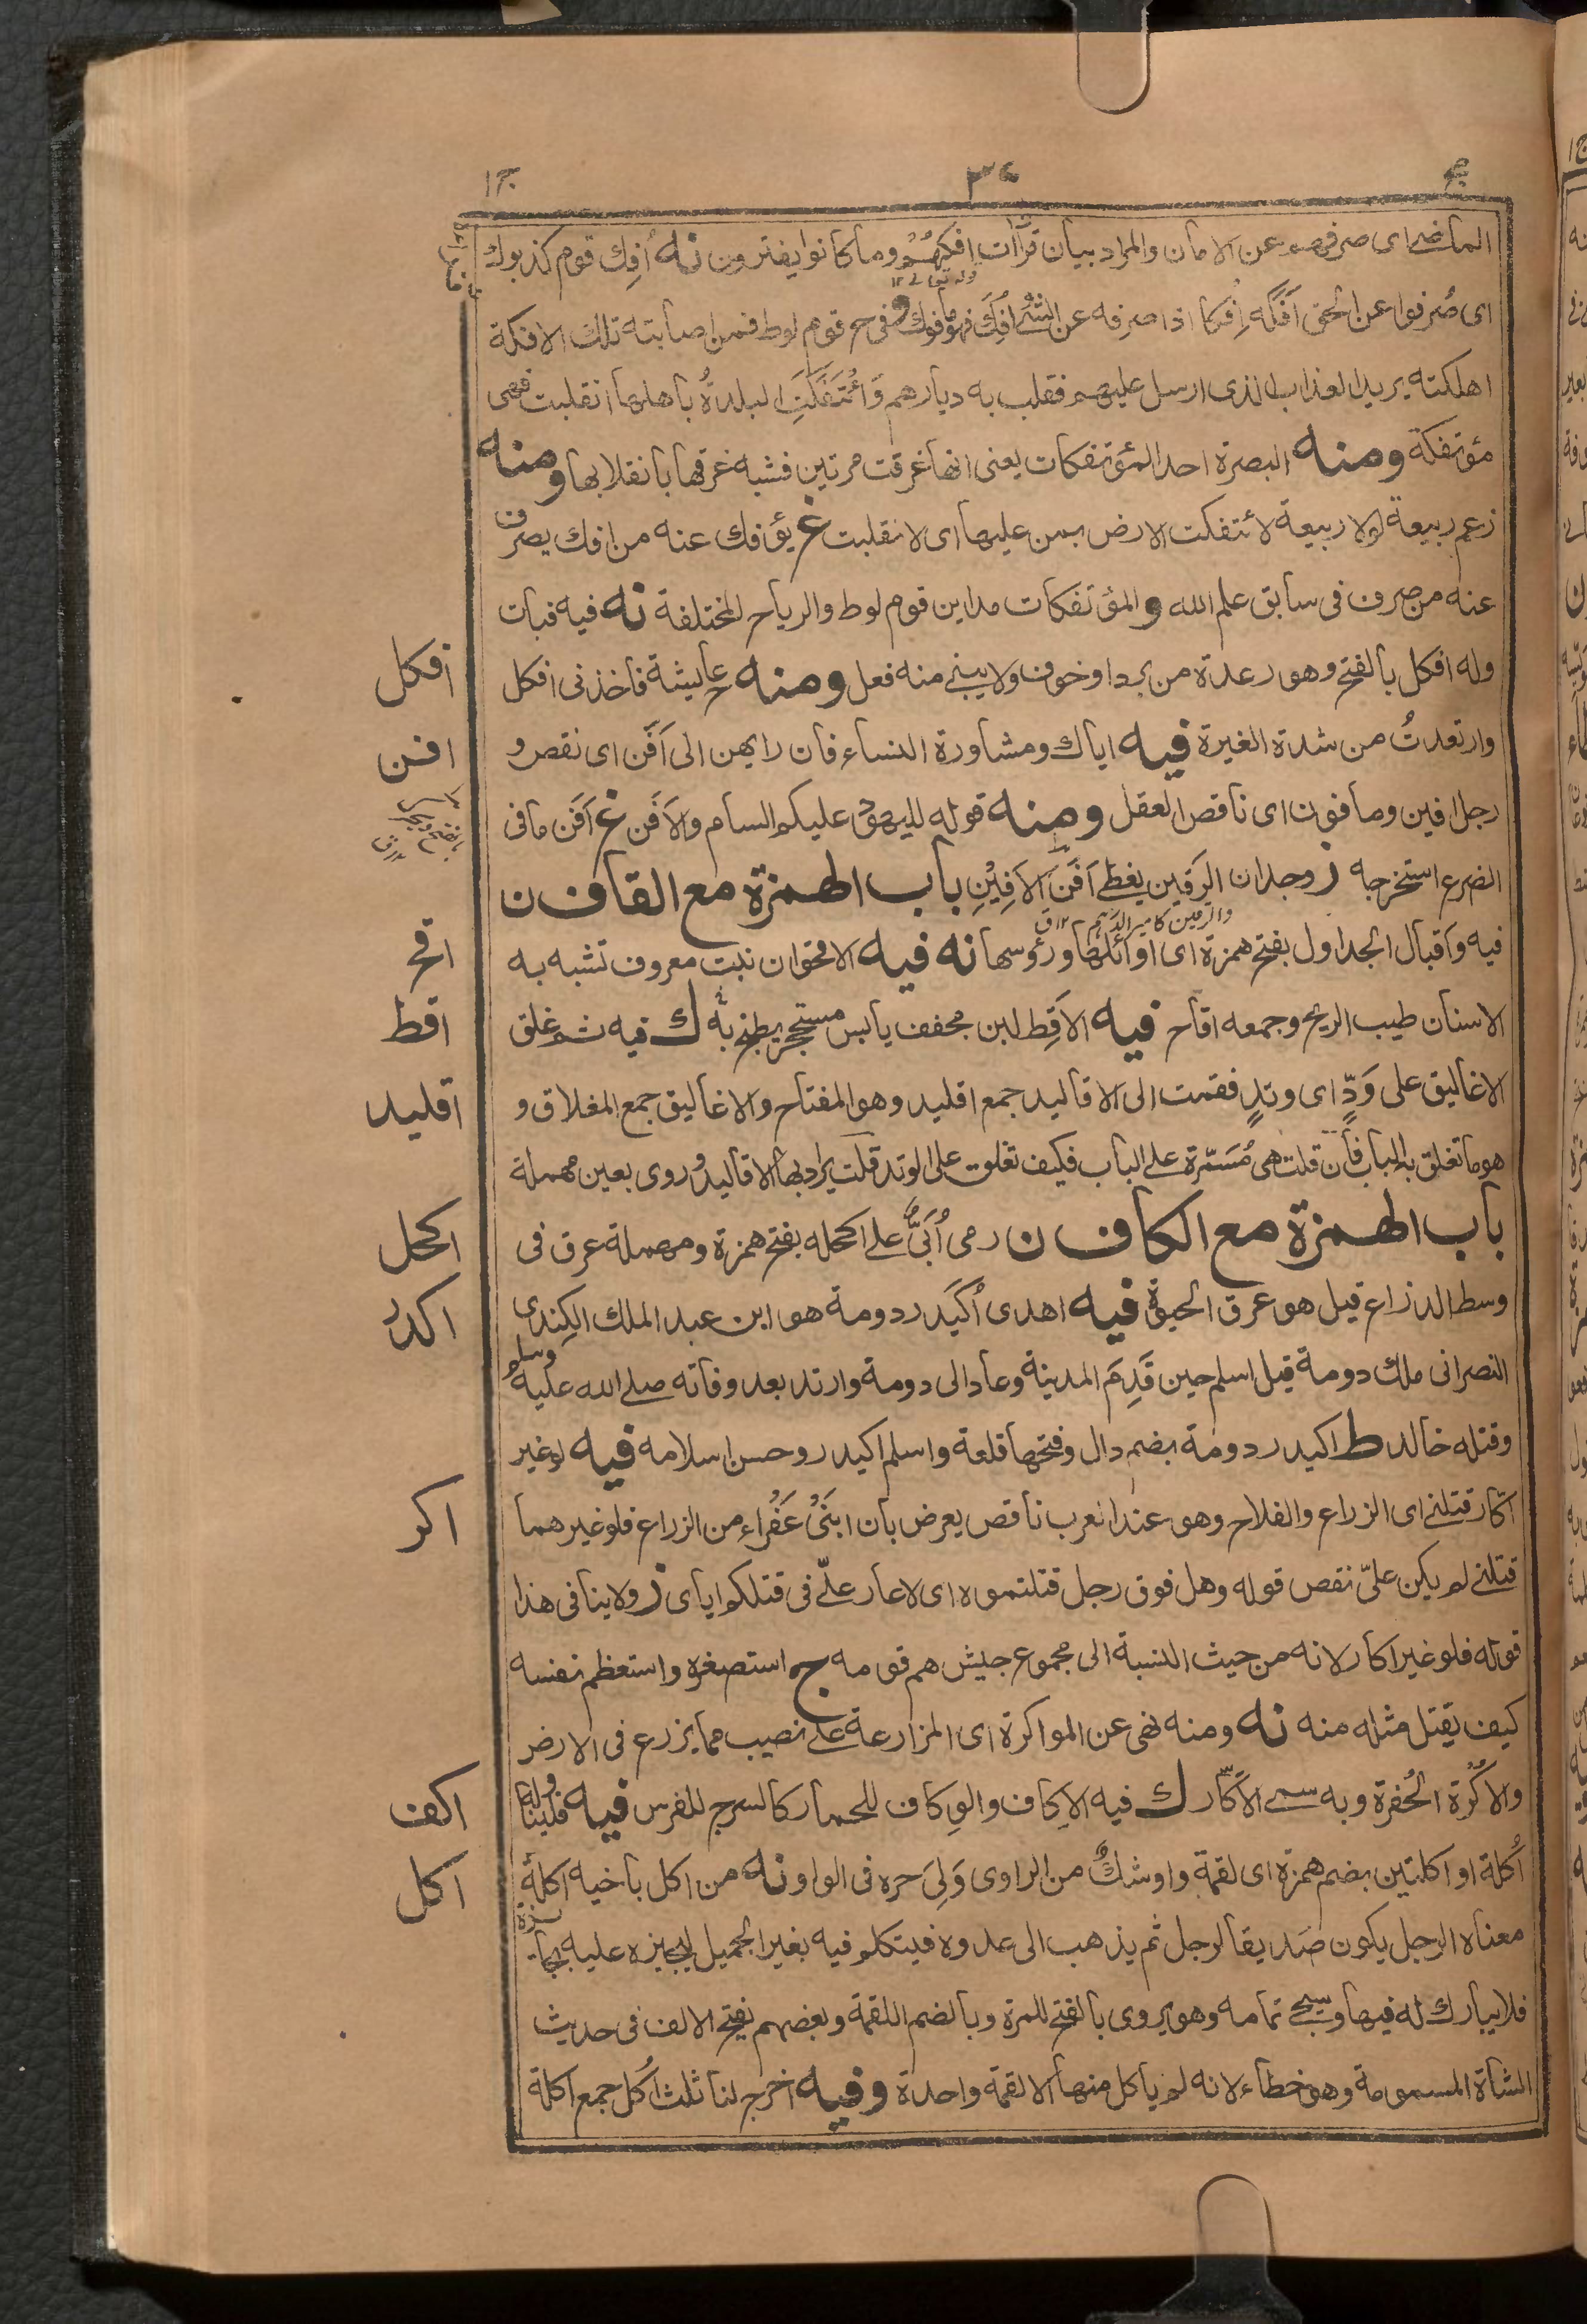 ج ٣٤ ج١
الماضے اى صرفهم عن الامان والمراد بيان قراآت افكهُمْ وما كانوا يفترون نه اُفِك قوم كذبوك
قوله تعالے ١٢
اى صُرفوا عن الحق اَفَكَه اِفكا اذا صرفه عن الشئ اُفِكَ فهو مافوك و فى ح قوم لوط فمن اصابته تلك الافكة
اهلكته يريد العذاب الذى ارسل عليهم فقلب به ديارهم وَأئتَفَكَتِ البلدةُ باهلها انقلبت فهى
مؤتفكة ومنه البصرة احد المؤتفكات يعنى انها غرقت مرتين فشبه غرقها بانقلابها ومنه
زعم ربيعة لولا ربيعة لائتفكت الارض بمن عليها اى لانقلبت غ يؤفك عنه من افك يصرف
عنه من صرف فى سابق علم الله و المؤتفكات مداين قوم لوط والرياح المختلفة نه فيه فبات
افكل
وله افكل بالفتح وهو رعدة من برد او خوف ولا يبنے منه فعل ومنه ح عايشة فاخذنى افكل
افن
وارتعدتُ من شدة الغيرة فيه اياك ومشاورة النساء فان رايهن الى اَفَن اى نقص و
رجل افين ومافون اى ناقص العقل ومنه قوله لليهود عليكم السام والاَفَن غ اَفَن ما فى
الضرع استخرجه ز وجدان الرَقين يغطے اَفَنَ الاَفِيْنِ باب الهمزة مع القاف ن
والرقين كامير الدرهم ١٢ ق
اقح
فيه واقبال الجداول بفتح همزة اى اوائلها ورؤسها نه فيه الاقحوان نبت معروف تشبه به
اقط
الاسنان طيب الريح وجمعه اقاح فيه الاَقِط لبن مجفف يابس مستحجر يطبخ به ك فيه ثم غلق
اقليد
الاغاليق على وَدٍّ اى وتدٍ فقمت الى الاقاليد جمع اقليد وهو المفتاح والاغاليق جمع المغلاق و
هو ما تغلق به الباب فان قلت هى مُسَمّرة على الباب فكيف تغلق على الوتد قلت يراد بها الاقاليد و روى بعين مهملة
اكحل
باب الهمزة مع الكاف ن رمى اُبَىٌّ علے اكحله بفتح همزة ومهملة عرق فى
اكدر
وسط الذراع قيل هو عرق الحيوة فيه اهدى اُكَيدر دومة هو ابن عبد الملك الكِندى
النصرانى ملك دومة قيل اسلم حين قَدِمَ المدينة وعاد الى دومة وارتد بعد وفاته صلے الله عليه وسلم
وقتله خالد ط اكيدر دومة بضم دال وفتحها قلعة واسلم اكيدر وحسن اسلامه فيه لو غير
اكر
اكار قتلنے اى الزراع والفلاح وهو عند العرب ناقص يعرض بان ابنَىْ عَفْراء من الزراع فلو غيرهما
قتلنے لم يكن علىّ نقص قوله وهل فوق رجل قتلتموه اى لا عار علىّ فى قتلكم اياى ز ولا ينافى هذا
قوله فلو غير اكار لانه من حيث النسبة الى مجموع جيش هم قومه ج استصغره واستعظم نفسه
كيف يقتل مثله منه نه ومنه نهى عن المواكرة اى المزارعة علے نصيب مما يزرع فى الارض
اكف
والاُكْرة الحُفرة وبه سمے الاَكّار ك فيه الاِكاف والوِكاف للحمار كالسرج للفرس فيه فليناوله
اكل
اُكلة او اكلتين بضم همزة اى لقمة واو شكٌ من الراوى وَلِىَ حره فى الواو نه من اكل باخيه اكلة
معناه الرجل يكون صَديقا لرجل ثم يذهب الى عدوه فيتكلم فيه بغير الجميل ليجيزه عليه بجائزة
فلا يبارك له فيها وسيجے تمامه وهو يروى بالفتح للمرة وبالضم اللقمة وبعضهم يفتح الالف فى حديث
الشاة المسمومة وهو خطاء لانه لم ياكل منها الا لقمة واحدة وفيه اخرج لنا ثلث اُكَل جمع اكلة